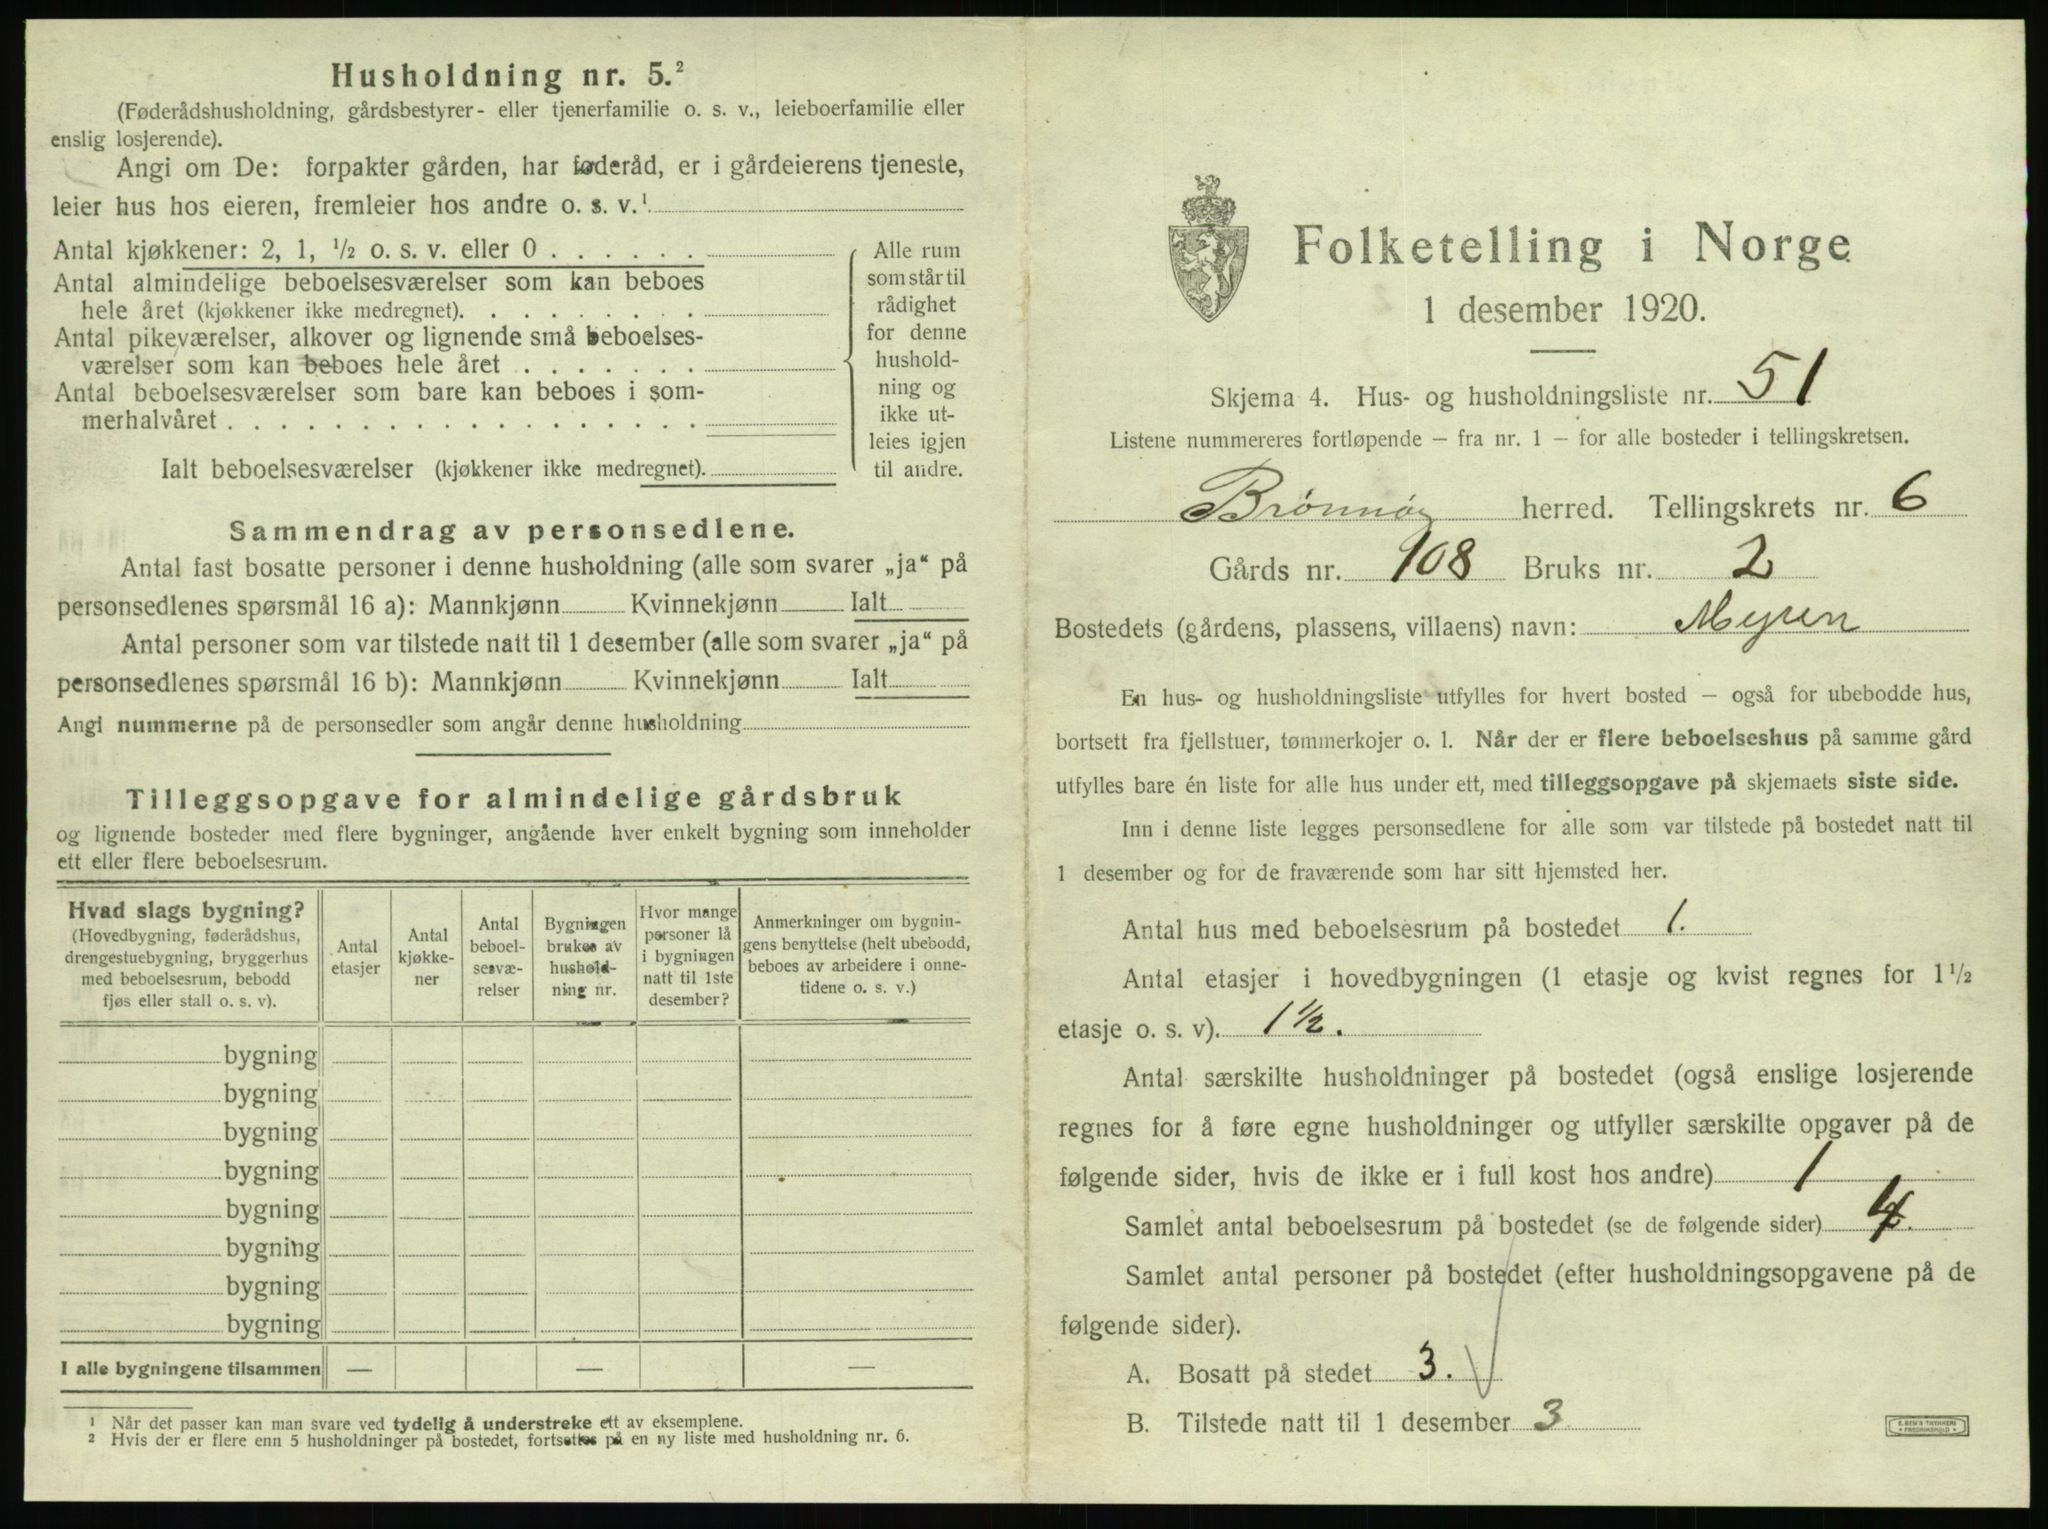 Husholdning nr. 5.²
(Føderådshusholdning, gårdsbestyrer- eller tjenerfamilie o. s. v., leieboerfamilie eller
enslig losjerende).
Angi om De: forpakter gården, har føderåd, er i gårdeierens tjeneste,
leier hus hos eieren, fremleier hos andre o. s. v.¹
Antal kjøkkener: 2, 1, ½ o. s. v. eller 0 . . . . . .
Antal almindelige beboelsesværelser som kan beboes
hele året (kjøkkener ikke medregnet). . . . . . . . .
Antal pikeværelser, alkover og lignende små beboelses-
værelser som kan beboes hele året . . . . . . .
Antal beboelsesværelser som bare kan beboes i som-
merhalvåret . . . . . . . . . . . . . . . . . .
Ialt beboelsesværelser (kjøkkener ikke medregnet).
Alle rum
som står til
rådighet
for denne
hushold-
ning og
ikke ut-
leies igjen
til andre.
Sammendrag av personsedlene.
Antal fast bosatte personer i denne husholdning (alle som svarer „ja“ på
personsedlenes spørsmål 16 a): Mannkjønn Kvinnekjønn Ialt
Antal personer som var tilstede natt til 1 desember (alle som svarer „ja“ på
personsedlenes spørsmål 16 b): Mannkjønn Kvinnekjønn Ialt
Angi nummerne på de personsedler som angår denne husholdning
Tilleggsopgave for almindelige gårdsbruk
og lignende bosteder med flere bygninger, angående hver enkelt bygning som inneholder
ett eller flere beboelsesrum.
Hvad slags bygning?
(Hovedbygning, føderådshus,
drengestuebygning, bryggerhus
med beboelsesrum, bebodd
fjøs eller stall o. s. v).
Antal
etasjer
Antal
kjøkke-
ner
Antal
beboel-
sesvæ-
relser
Bygningen
brukes av
hushold-
ning nr.
Hvor mange
personer lå
i bygningen
natt til 1ste
desember?
Anmerkninger om bygnin-
gens benyttelse (helt ubebodd,
beboes av arbeidere i onne-
tidene o. s. v.)
bygning
bygning
bygning
bygning
bygning
bygning
bygning
bygning
I alle bygningene tilsammen — — —
¹ Når det passer kan man svare ved tydelig å understreke ett av eksemplene.
² Hvis der er flere enn 5 husholdninger på bostedet, fortsettes på en ny liste med husholdning nr. 6.
Folketelling i Norge
1 desember 1920.
Skjema 4. Hus- og husholdningsliste nr. 51
Listene nummereres fortløpende – fra nr. 1 – for alle bosteder i tellingskretsen.
Brønnøy herred. Tellingskrets nr. 6
Gårds nr. 108 Bruks nr. 2
Bostedets (gårdens, plassens, villaens) navn: Myren
En hus- og husholdningsliste utfylles for hvert bosted – også for ubebodde hus,
bortsett fra fjellstuer, tømmerkojer o. l. Når der er flere beboelseshus på samme gård
utfylles bare én liste for alle hus under ett, med tilleggsopgave på skjemaets siste side.
Inn i denne liste legges personsedlene for alle som var tilstede på bostedet natt til
1 desember og for de fraværende som har sitt hjemsted her.
Antal hus med beboelsesrum på bostedet 1.
Antal etasjer i hovedbygningen (1 etasje og kvist regnes for 1½
etasje o. s. v). 1½.
Antal særskilte husholdninger på bostedet (også enslige losjerende
regnes for å føre egne husholdninger og utfyller særskilte opgaver på de
følgende sider, hvis de ikke er i full kost hos andre) 1
Samlet antal beboelsesrum på bostedet (se de følgende sider) 4.
Samlet antal personer på bostedet (efter husholdningsopgavene på de
følgende sider).
A. Bosatt på stedet 3.
B. Tilstede natt til 1 desember 3